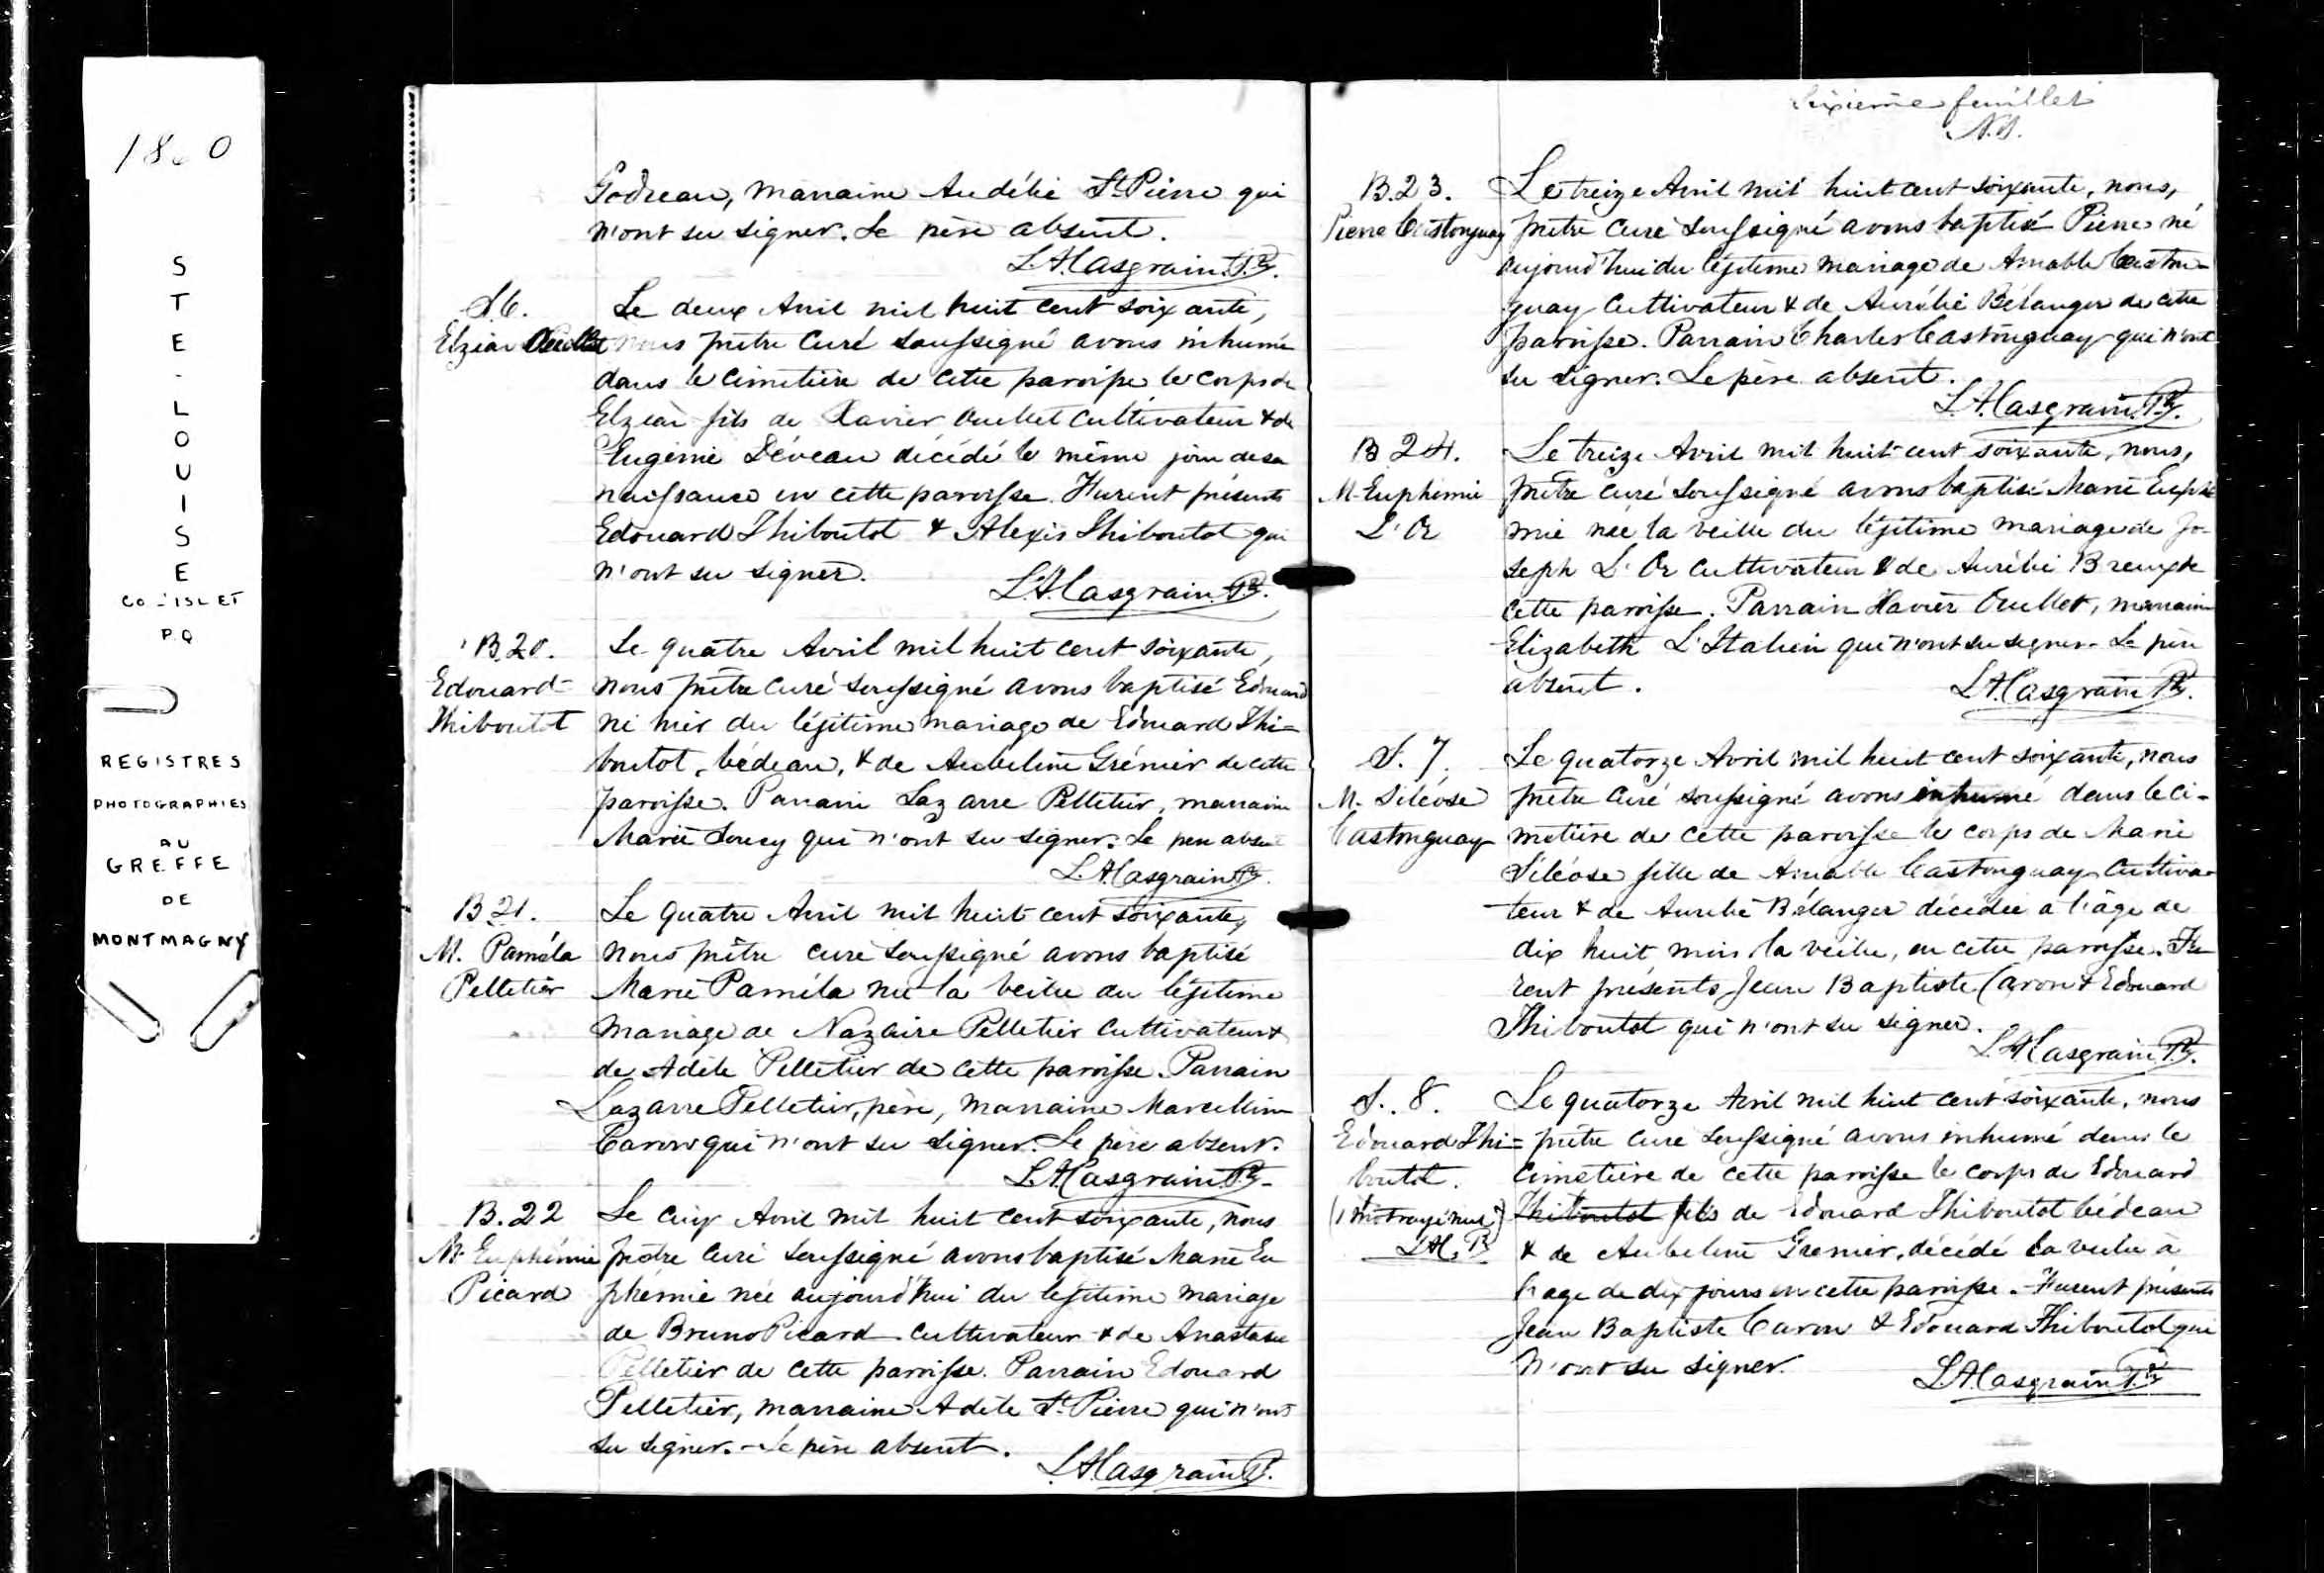 1860
STE-LOUISE
CO L'ISLET
P.Q
REGISTRES
PHOTOGRAPHIES
AU
GREFFE
DE
MONTMAGNY
Godreau, marraine Audélie St. Pierre qui
n'ont su signer. Le père absent.
L.A. Casgrain. Ptr.
S. 6.
Elzéar Ouellet
Le deux Avril mil huit cent soixante,
nous prêtre Curé soussigné avons inhumé
dans le cimetière de cette paroisse le corps de
Elzéar fils de Xavier Ouellet cultivateur & de
Eugénie Déveau décédé le même jour de sa
naissance en cette paroisse. Furent présents
Edouard Thiboutot & Alexis Thiboutot qui
n'ont su signer.
L.A. Casgrain. Ptr.
B. 20.
Edouard
Thiboutot
Le quatre Avril mil huit cent soixante,
nous prêtre curé soussigné avons baptisé Edouard
né hier du légitime mariage de Edouard Thi=
boutot, bédeau, & de Aubeline Grénier de cette
paroisse. Parrain Lazarre Pelletier, marraine
Marie Soucy qui n'ont su signer. Le père absent
L.A. Casgrain Ptr.
B 21.
M. Paméla
Pelletier
Le quatre Avril mil huit cent soixante,
nous prêtre curé soussigné avons baptisé
Marie Paméla née la veille du légitime
mariage de Nazaire Pelletier cultivateur &
de Adèle Pelletier de cette paroisse. Parrain
Lazarre Pelletier, père, marraine Marcelline
Caron qui n'ont su signer. Le père absent.
L.A. Casgrain Ptr.
B. 22
M. Euphémie
Picard
Le cinq Avril mil huit cent soixante, nous
prêtre curé soussigné avons baptisé Marie Eu
phémie née aujourd'hui du légitime mariage
de Bruno Picard cultivateur & de Anastasie
Pelletier de cette paroisse. Parrain Edouard
Pelletier, marraine Adèle St. Pierre qui n'ont
su signer. - Le père absent.
L.A. Casgrain Ptr.
Sixième feuillet
B. 23.
Pierre Castonguay
Le treize Avril mil huit cent soixante, nous,
prêtre curé soussigné avons baptisé Pierre né
aujourd'hui du légitime mariage de Amable Caston-
guay cultivateur & de Aurélie Bélanger de cette
paroisse. Parrain Charles Castonguay qui n'ont
su signer. Le père absent.
L.A. Casgrain. Ptr.
B 24.
M. Euphémie
L'Or
Le treize Avril mil huit cent soixante, nous,
prêtre curé soussigné avons baptisé Marie Euphé
mie née la veille du légitime mariage de Jo-
seph L'Or cultivateur & de Aurélie Breux de
cette paroisse. Parrain Xavier Ouellet, marraine
Elizabeth L'Italien qui n'ont su signer. Le père
absent.
L.A. Casgrain Ptr.
S. 7.
M. Siléose
Castonguay
Le quatorze Avril mil huit cent soixante, nous
prêtre curé soussigné avons inhumé dans le ci-
metière de cette paroisse le corps de Marie
Siléose fille de Amable Castonguay cultiva-
teur & de Aurelie Bélanger décédée à l'âge de
dix huit mois la veille, en cette paroisse. Fu
rent présents Jean Baptiste Caron & Edouard
Thiboutot qui n'ont su signer.
L.A. Casgrain Ptr.
S. 8.
Edouard Thi=
boutot.
(1 mot rayé nul)
L.A.C. P.
Le quatorze Avril mil huit cent soixante, nous
prêtre curé soussigné avons inhumé dans le
cimetière de cette paroisse le corps de Edouard
Thiboutot fils de Edouard Thiboutot bédeau
& de Aubeline Grenier, décédé la veille à
l'age de dix jours en cette paroisse. - Furent présents
Jean Baptiste Caron & Edouard Thiboutot qui
n'ont su signer.
L.A. Casgrain Ptr